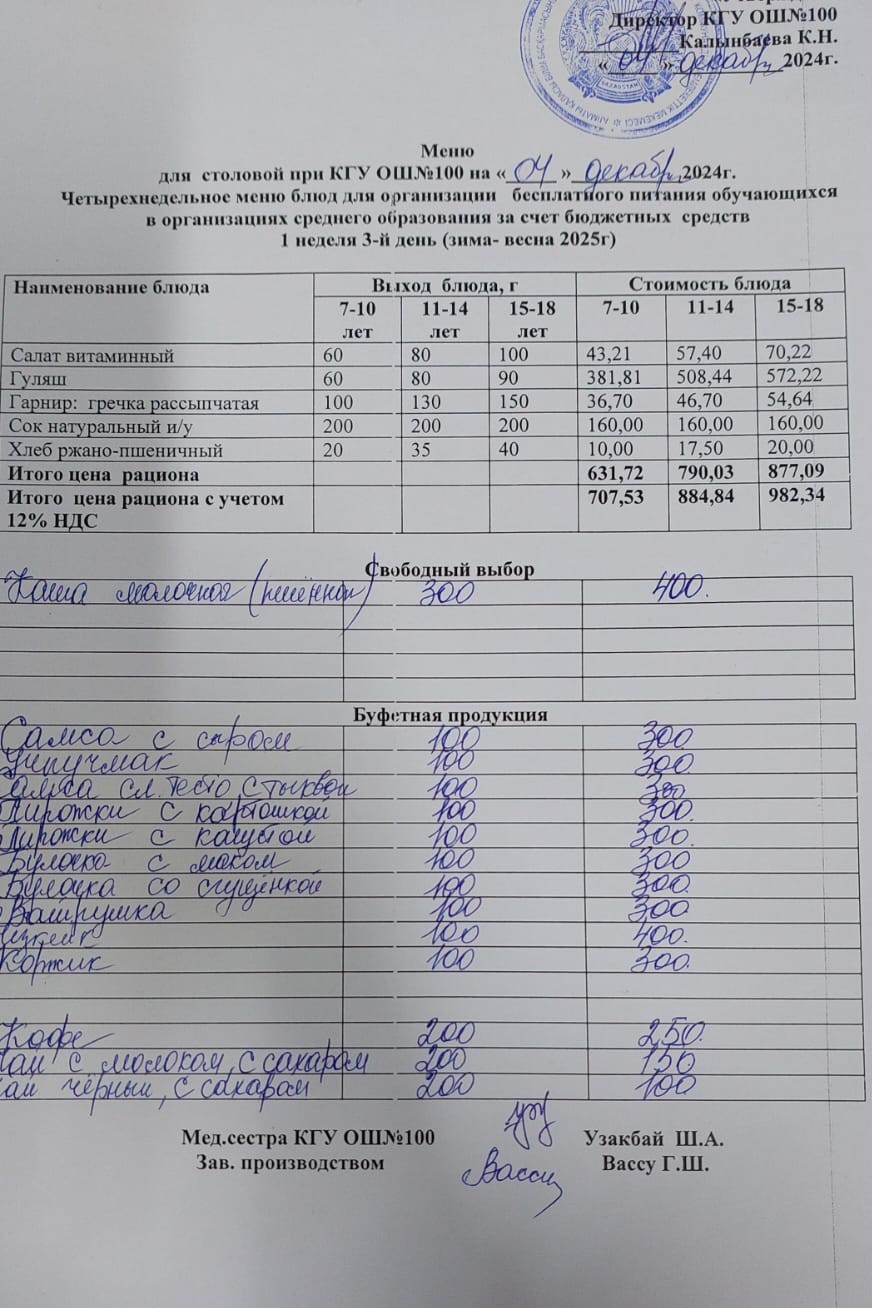 Директор КГУ ОШ№100
Калынбаева К.Н.
«04» декабр 2024г.
KAZAKHSTAN
Меню
для столовой при КГУ ОШ№100 на «04» декабр 2024г.
Четырехнедельное меню блюд для организации бесплатного питания обучающихся
в организациях среднего образования за счет бюджетных средств
1 неделя 3-й день (зима- весна 2025г)
Наименование блюда Выход блюда, г Стоимость блюда
7-10 лет 11-14 лет 15-18 лет 7-10 11-14 15-18
Салат витаминный 60 80 100 43,21 57,40 70,22
Гуляш 60 80 90 381,81 508,44 572,22
Гарнир: гречка рассыпчатая 100 130 150 36,70 46,70 54,64
Сок натуральный и/у 200 200 200 160,00 160,00 160,00
Хлеб ржано-пшеничный 20 35 40 10,00 17,50 20,00
Итого цена рациона 631,72 790,03 877,09
Итого цена рациона с учетом 707,53 884,84 982,34
12% НДС
Свободный выбор
Каша молочная (пшённая) 300 400.
Буфетная продукция
Самса с сыром 100 300
Учпучмак 100 300
амса сл. тесто с тыквой 100 300
Пирожки с картошкой 100 300.
Пирожки с капустой 100 300.
Булочка с маком 100 300
Булочка со сгущёнкой 100 300.
Ватрушка 100 300
100 400.
Коржик 100 300.
Кофе 200 250.
чай с молоком, с сахаром 200 150
чай чёрный, с сахаром 200 100
Мед.сестра КГУ ОШ№100 Узакбай Ш.А.
Зав. производством Вассу Г.Ш.